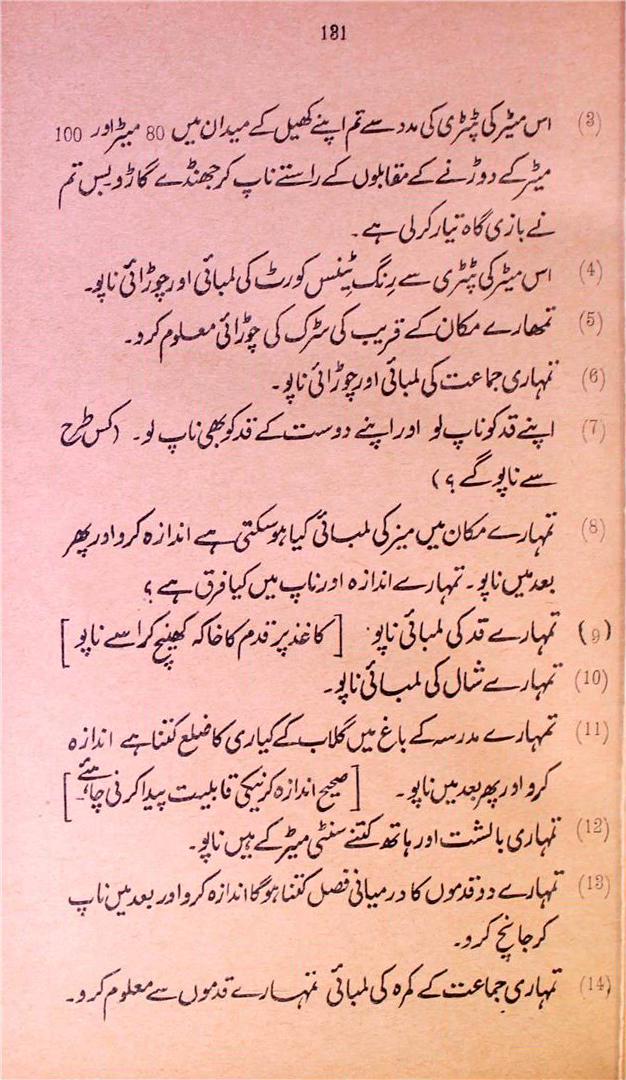 131
(3) اس میٹر کی پٹری کی مدد سے تم اپنے کھیل کے میدان میں 80 میٹر اور 100
میٹر کے دوڑنے کے مقابلوں کے راستے ناپ کر جھنڈے گاڑو بس تم
نے بازی گاہ تیار کر لی ہے۔
(4) اس میٹر کی پٹری سے رِنگ ٹینس کورٹ کی لمبائی اور چوڑائی ناپو۔
(5) تمھارے مکان کے قریب کی سڑک کی چوڑائی معلوم کرو۔
(6) تمہاری جماعت کی لمبائی اور چوڑائی ناپو۔
(7) اپنے قد کو ناپ لو اور اپنے دوست کے قد کو بھی ناپ لو۔ (کس طرح
سے ناپو گے؟)
(8) تمہارے مکان میں میز کی لمبائی کیا ہو سکتی ہے اندازہ کرو اور پھر
بعد میں ناپو۔ تمہارے اندازہ اور ناپ میں کیا فرق ہے؟
(9) تمہارے قد کی لمبائی ناپو۔ [کاغذ پر قدم کا خاکہ کھینچ کر اسے ناپو]
(10) تمہارے شال کی لمبائی ناپو۔
(11) تمہارے مدرسہ کے باغ میں گلاب کے کیاری کا ضلع کتنا ہے اندازہ
کرو اور پھر بعد میں ناپو۔ [صحیح اندازہ کرنیکی قابلیت پیدا کرنی چاہئے۔]
(12) تمہاری بالشت اور ہاتھ کتنے سنٹی میٹر کے ہیں ناپو۔
(13) تمہارے دو قدموں کا درمیانی فصل کتنا ہوگا اندازہ کرو اور بعد میں ناپ
کر جانچ کرو۔
(14) تمہاری جماعت کے کمرہ کی لمبائی تمہارے قدموں سے معلوم کرو۔